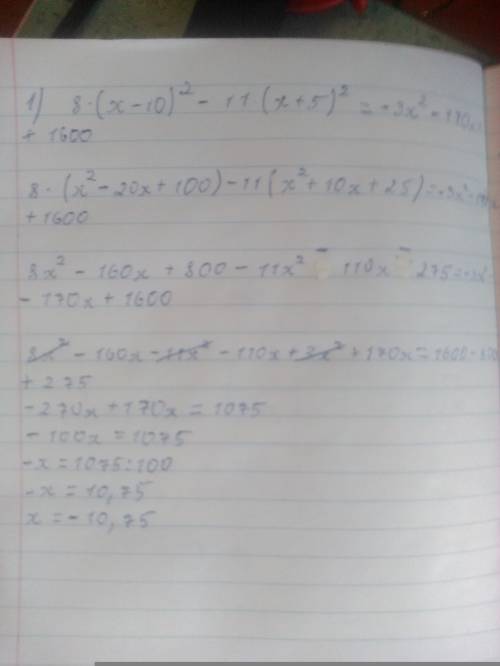 1) 8·(x-10)² - 11(x+5)² = -3x² - 170x
+ 1600
8·(x²-20x+100)-11(x²+10x+25)=-3x²
+1600
8x² - 160x + 800 - 11x² - 110x - 275=-3x²
- 170x + 1600
8x² - 160x - 11x² - 110x + 3x² + 170x = 1600 - 800
+ 275
-270x + 170x = 1075
-100x = 1075
-x = 1075:100
-x = 10,75
x = - 10,75